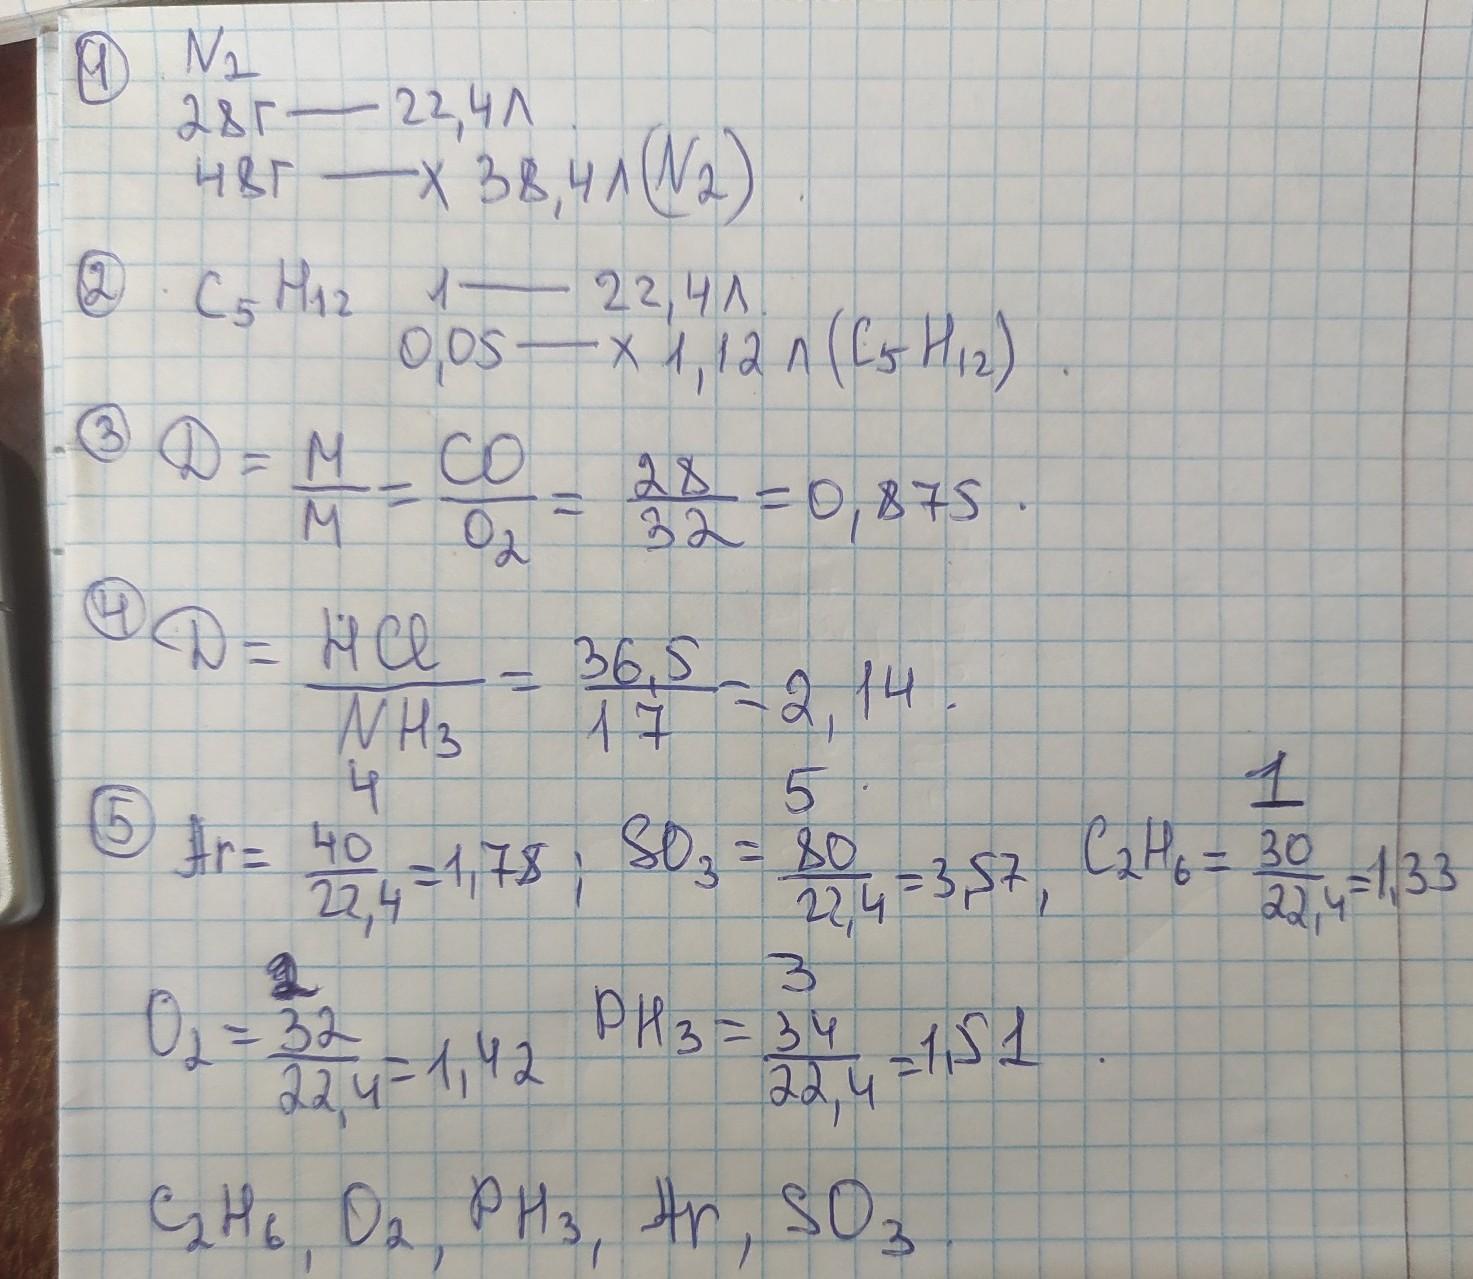 ① N₂
28г — 22,4л
48г — x 38,4л(N₂)
② C₅H₁₂ 1 — 22,4л
0,05 — x 1,12л(C₅H₁₂).
③ D = M/M = CO/O₂ = 28/32 = 0,875.
④ D = HCl/NH₃ = 36,5/17 = 2,14.
4 5 1
⑤ Ar = 40/22,4 = 1,78; SO₃ = 80/22,4 = 3,57, C₂H₆ = 30/22,4 = 1,33
2 3
O₂ = 32/22,4 = 1,42 PH₃ = 34/22,4 = 1,51.
C₂H₆, O₂, PH₃, Ar, SO₃.